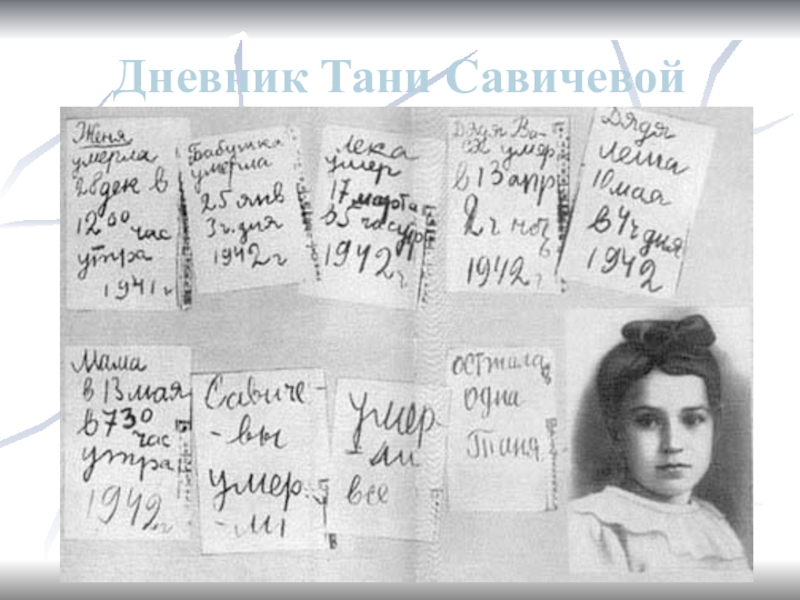 Дневник Тани Савичевой
Женя
умерла
28 дек в
12 00 час
утра
1941 г
Бабушка
умерла
25 янв
3 ч. дня
1942 г
Лека
умер
17 марта
в 5 час утр
1942 г
Дядя Ва-
ся умер
в 13 апр
2 ч ноч
1942 г
Дядя
Леша
10 мая
в 4 ч дня
1942
Мама
в 13 мая
в 7 30
час
утра
1942 г
Савиче-
-вы
умер-
-ли
умер-
-ли
все
осталась
одна
Таня